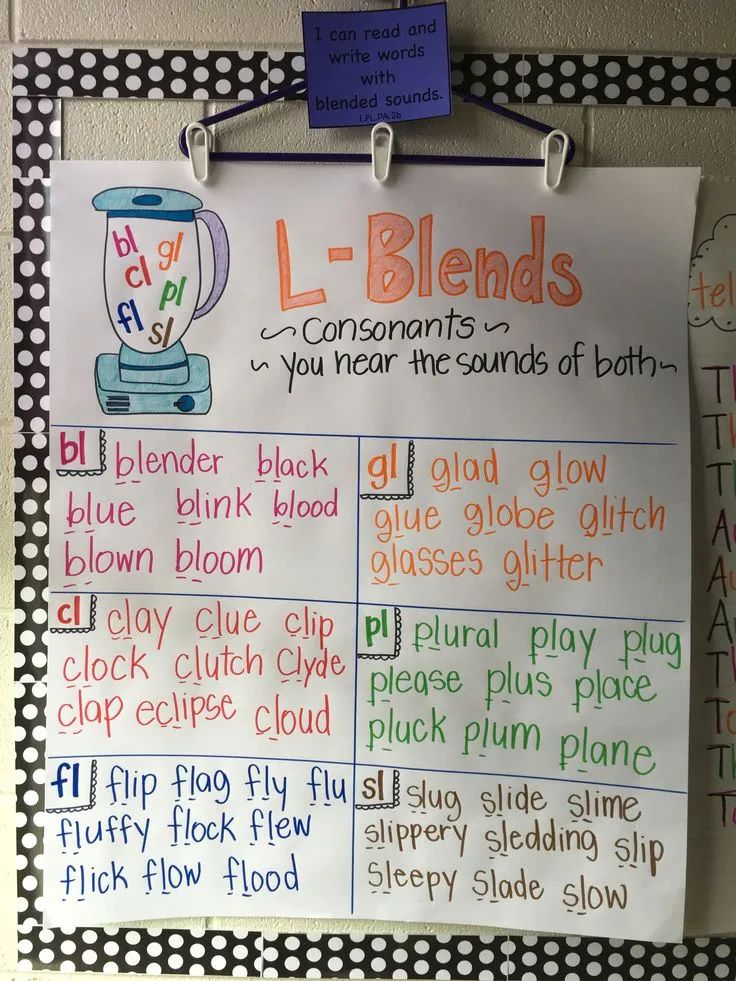 I can read and
write words
with
blended sounds.
1.FL.PA.2b
bl
gl
cl
pl
fl
sl
L-Blends
~ Consonants ~
~ You hear the sounds of both ~
bl blender black
blue blink blood
blown bloom
gl glad glow
glue globe glitch
glasses glitter
cl clay clue clip
clock clutch Clyde
clap eclipse cloud
pl plural play plug
please plus place
pluck plum plane
fl flip flag fly flu
fluffy flock flew
flick flow flood
sl slug slide slime
slippery sledding slip
Sleepy Slade slow
tel